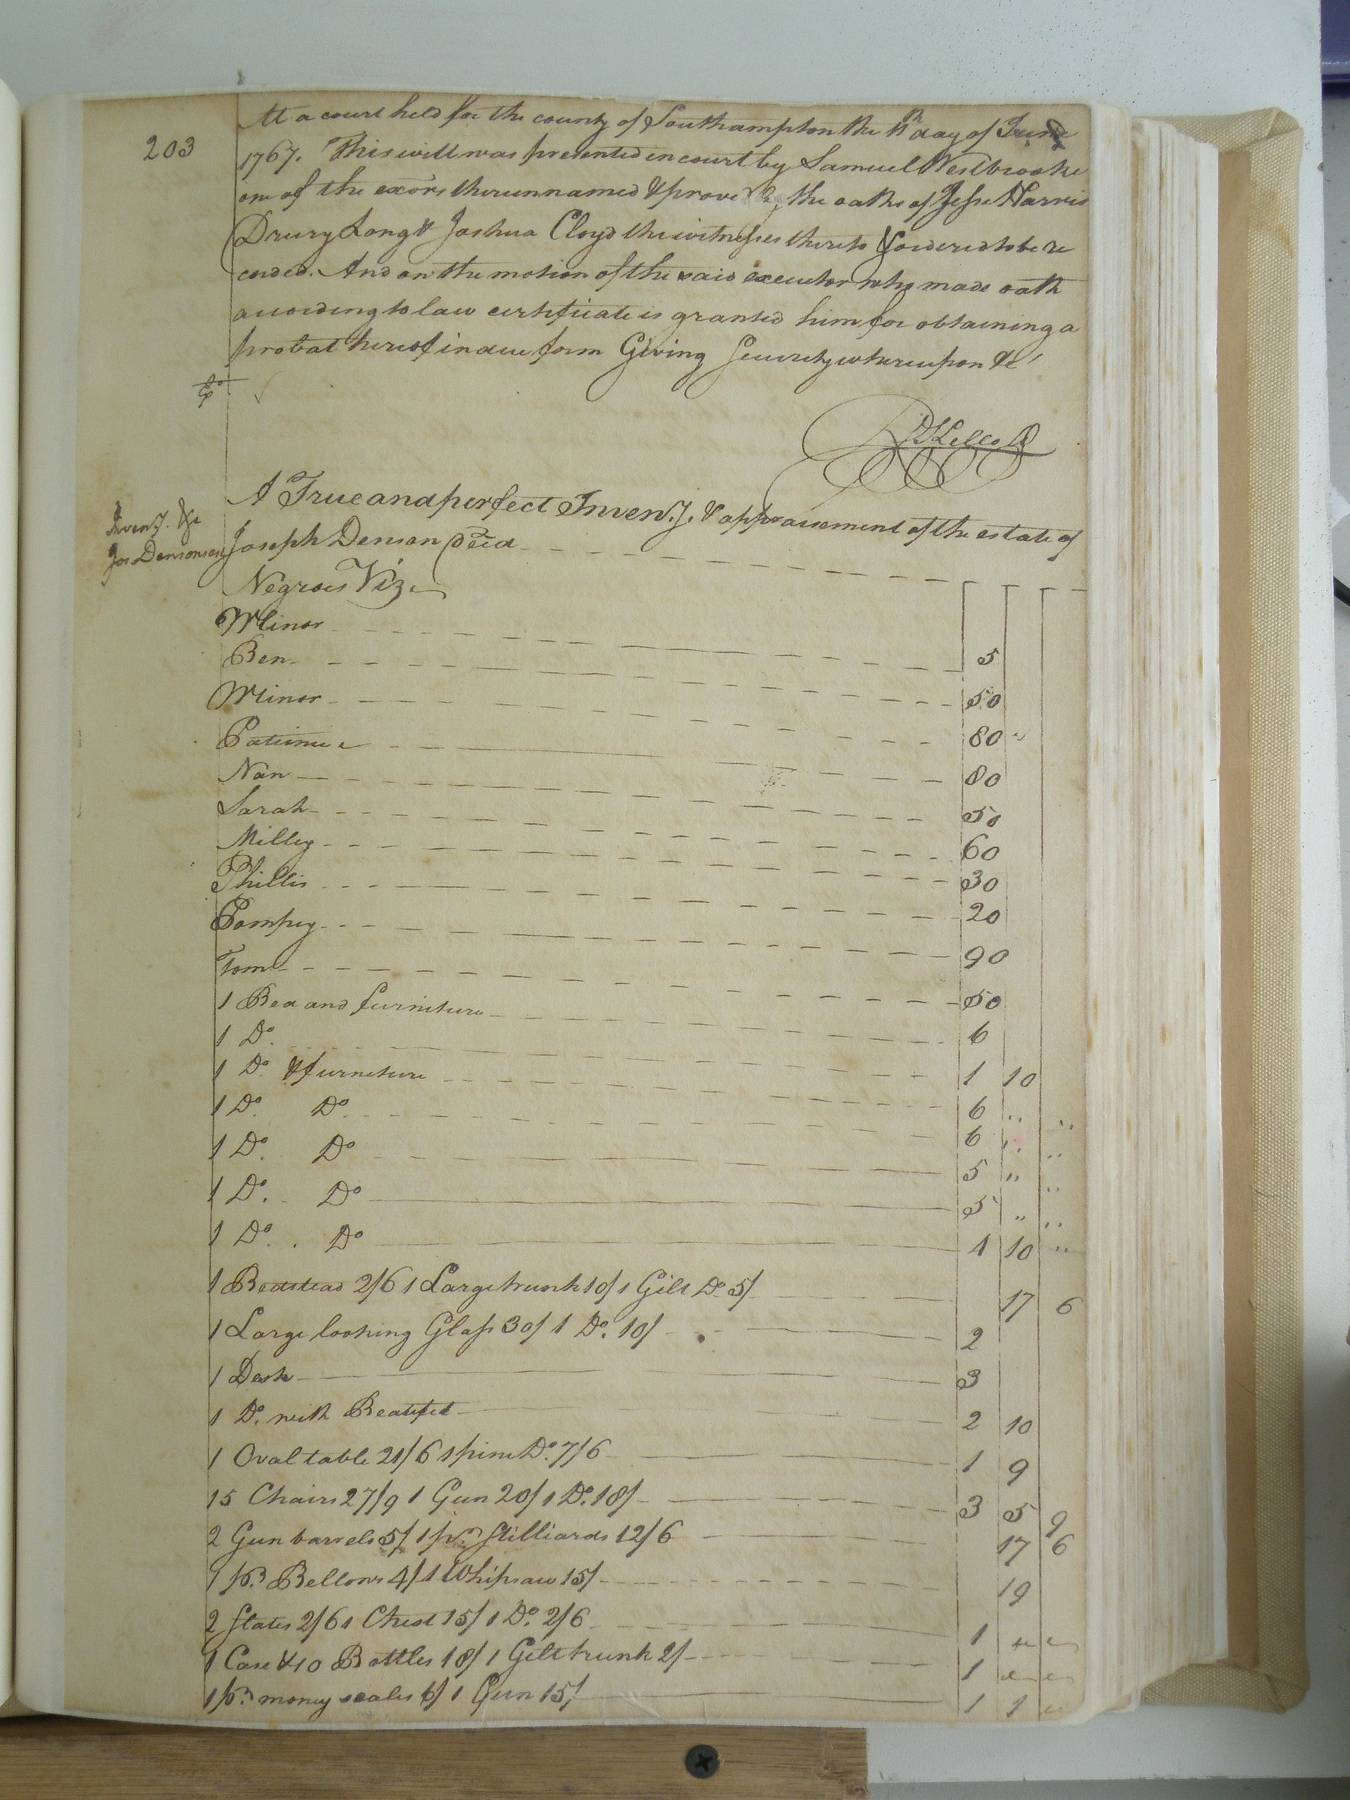 203
At a court held for the county of Southampton the 11th day of June
1767. This will was presented in court by Samuel Westbrooke
one of the exors therein named & prove by the oaths of Jesse Harris
Drury Long & Joshua Cloyd the witnesses thereto & ordered to be re
corded. And on the motion of the said executor who made oath
according to law certificate is granted him for obtaining a
probat hereof in due form Giving Security whereupon &c
Inventy. &c
Jos Densons est
A True and perfect Inventy. & appraisement of the estate of
Joseph Denson Decd
Negroes Viz
Minor 5
Ben 50
Minor 80
Patience 80
Nan 50
Sarah 60
Milley 30
Phillis 20
Pompey 90
Tom 50
1 Bed and furniture 6
1 Do. 1 10
1 Do & furniture 6 " "
1 Do. Do 6 " "
1 Do. Do 5 " "
1 Do. Do 5 " "
1 Do. Do 1 10 "
1 Bedstead 2/6 1 Large trunk 10/ 1 Gilt Do 5/ 17 6
1 Large looking Glass 30/ 1 Do. 10/ 2
1 Desk 3
1 Do. with Beaufet 2 10
1 Oval table 21/6 1 pine Do. 7/6 1 9
15 Chairs 27/9 1 Gun 20/ 1 Do. 18/ 3 5 9
2 Gun barrels 5/ 1 pr. Stilliards 12/6 17 6
1 pr. Bellows 4/ 1 Whipsaw 15/ 19
2 slates 2/6 1 Chest 15/ 1 Do. 2/6 1 " "
1 Case & 10 Bottles 18/ 1 Gilt trunk 2/ 1 " "
1 pr. money scales 6/ 1 Gun 15/ 1 1 "